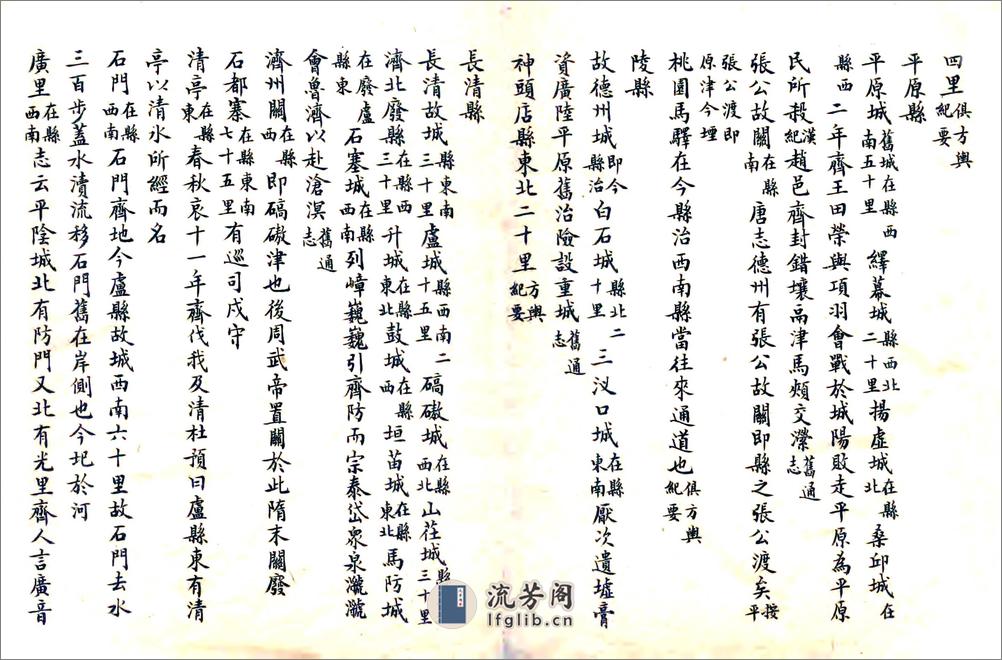 四里俱方輿紀要
平原縣
平原城舊城在縣西南五十里繹幕城縣西北二十里揚虛城在縣北桑邱城在
縣西二年齊王田榮與項羽會戰於城陽敗走平原為平原
民所殺漢紀趙邑齊封錯壤鬲津馬頰交瀠舊通志
張公故關在縣南唐志德州有張公故關即縣之張公渡矣按平
原津今堙張公渡即
桃園馬驛在今縣治西南縣當往來通道也俱方輿紀要
陵縣
故德州城即今縣治白石城縣北二十里三汊口城在縣東南厭次遺墟膏
資廣陸平原舊治險設重城舊通志
神頭店縣東北二十里方輿紀要
長清縣
長清故城縣東南三十里盧城縣西南二十五里碻磝城在縣西北山茌城縣三十里
濟北廢縣在縣西三十里升城在縣東北鼓城在縣西垣苗城在縣東北馬防城
在廢盧縣東石塞城在縣西南列嶂巍巍引齊防而宗泰岱衆泉瀧瀧
會魯濟以赴滄溟舊通志
濟州關在縣西即碻磝津也後周武帝置關於此隋末關廢
石都寨在縣東南七十五里有巡司戍守
清亭在縣東春秋哀十一年齊伐我及清杜預曰盧縣東有清
亭以清水所經而名
石門在縣西南石門齊地今盧縣故城西南六十里故石門去水
三百步蓋水瀆流移石門舊在岸側也今圮於河
廣里在縣西南志云平陰城北有防門又北有光里齊人言廣音
流芳阁
lfglib.cn